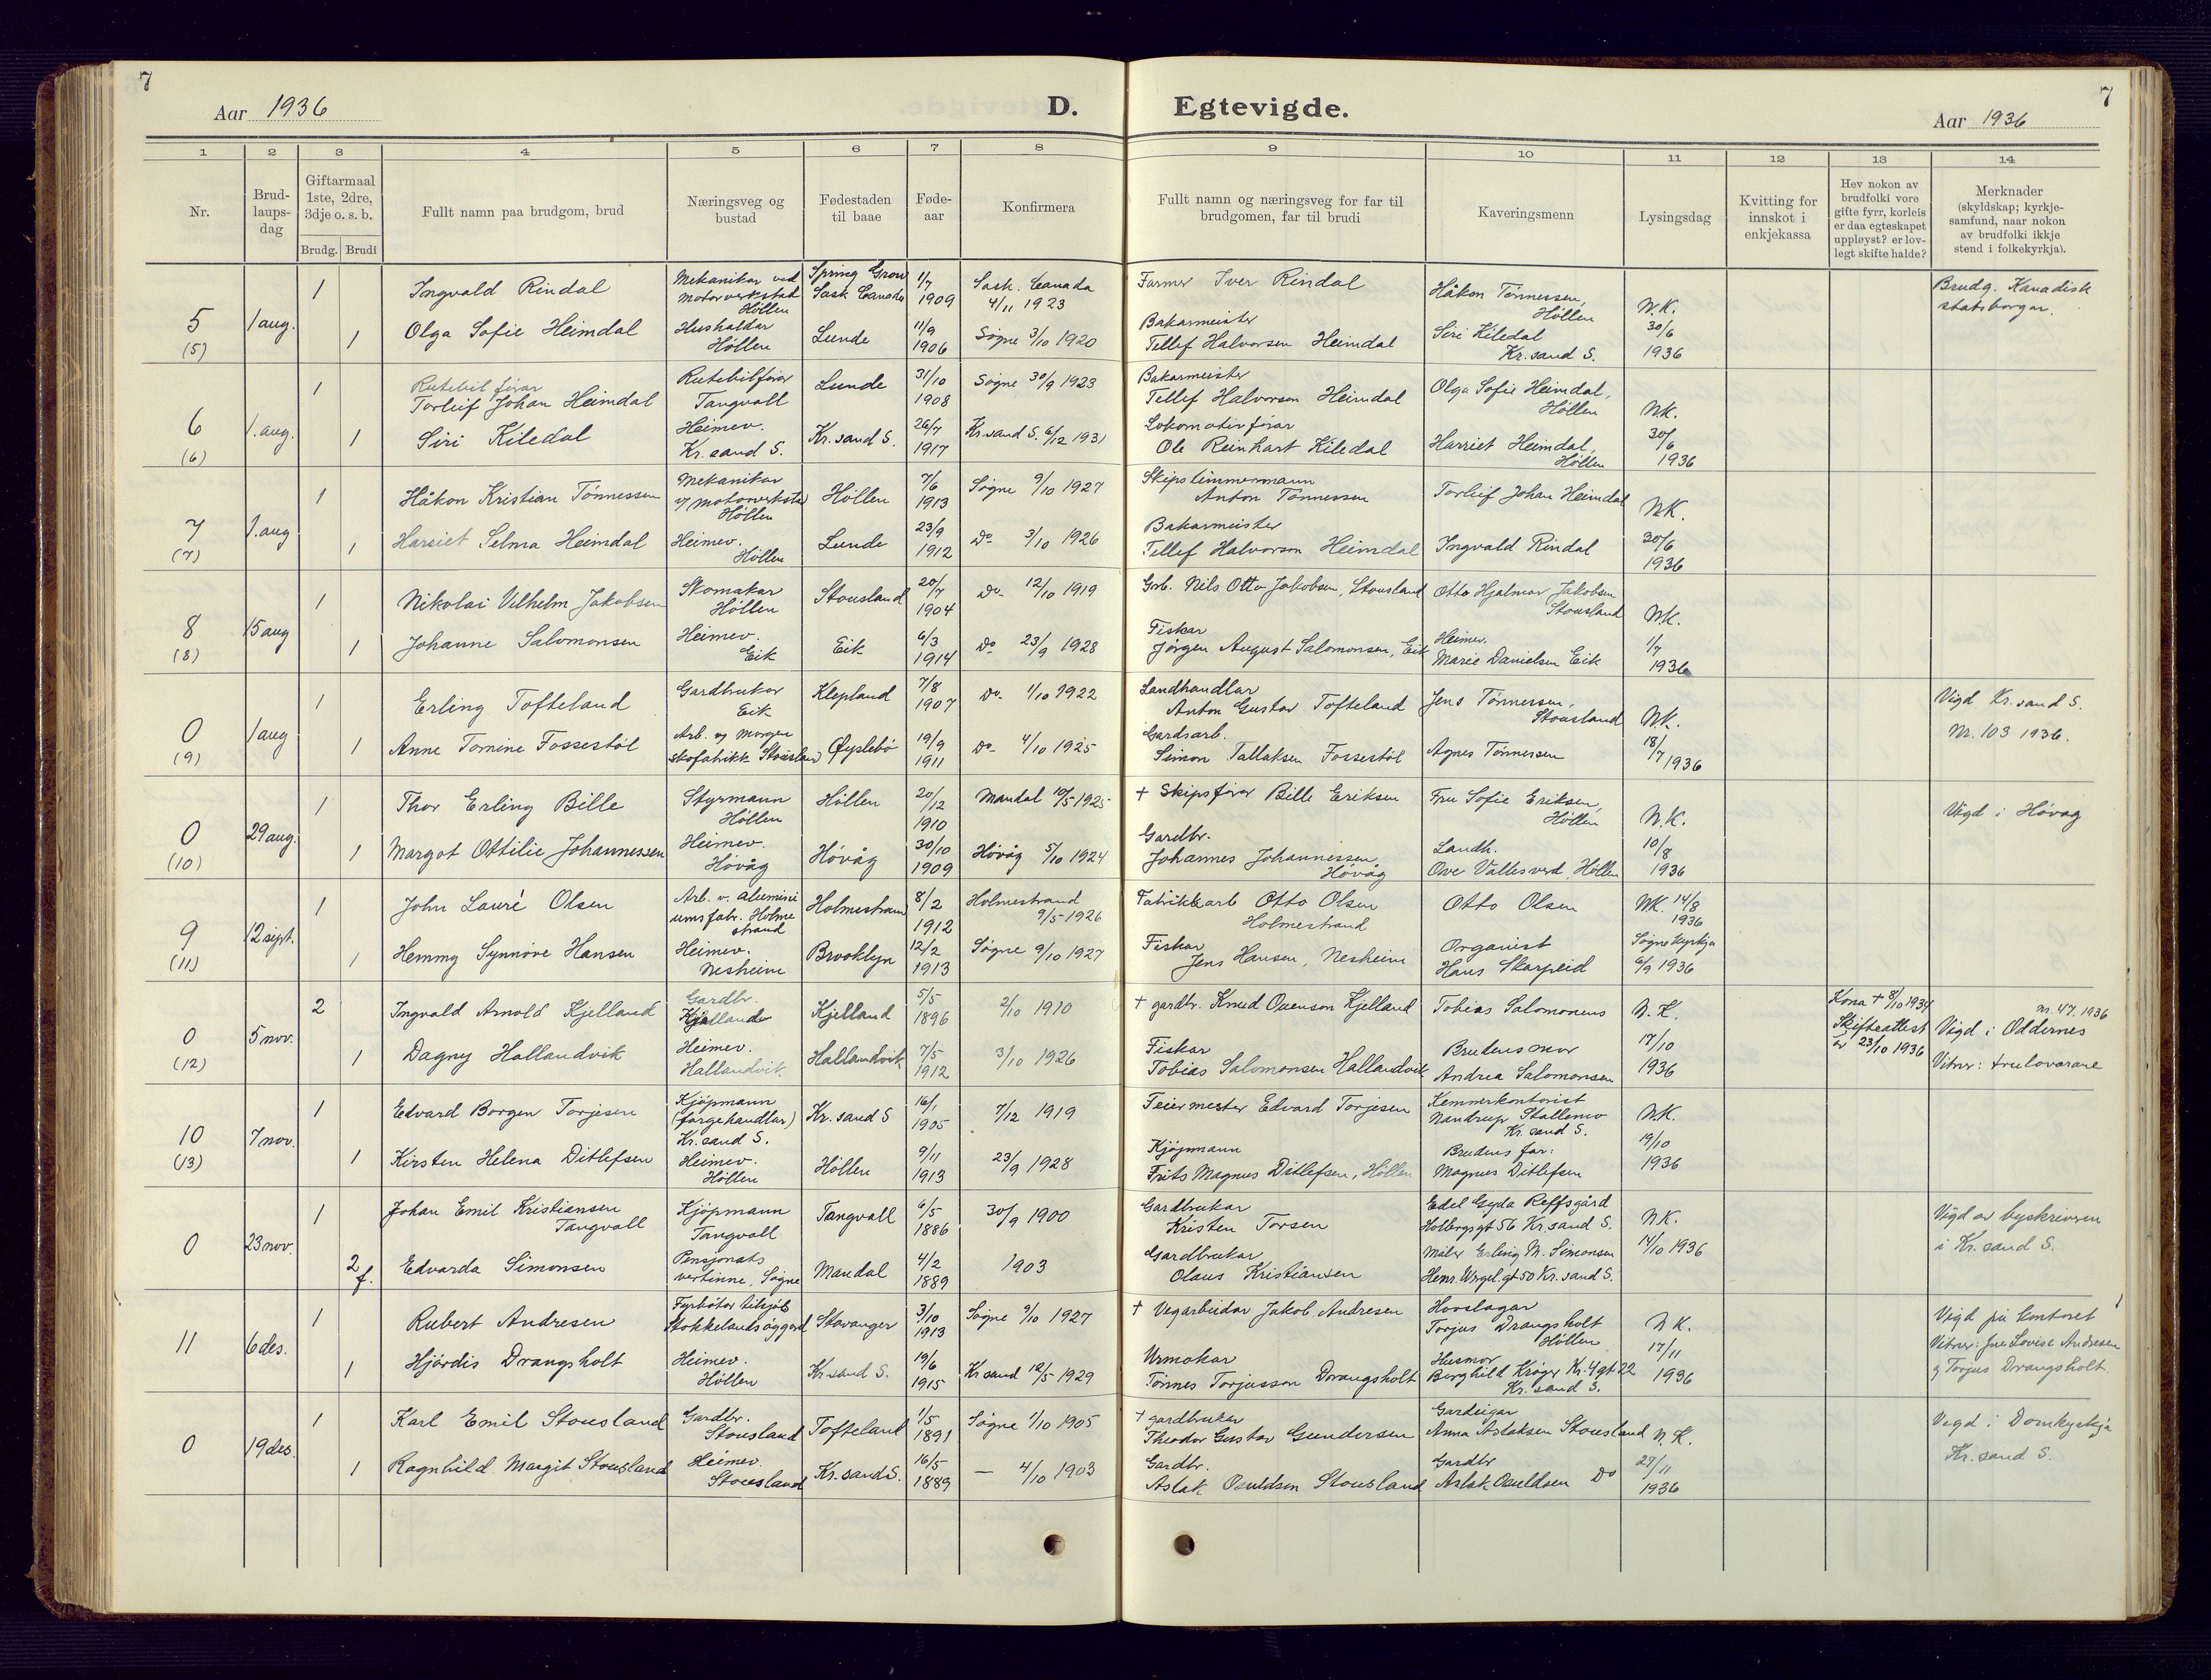 7
Aar 1936
D.
Egtevigde.
Aar 1936
7
1 2 3 4 5 6 7 8 9 10 11 12 13 14
Nr.
Brud-
laups-
dag
Giftarmaal
1ste, 2dre,
3dje o. s. b.
Brudg. Brudi
Fullt namn paa brudgom, brud
Næringsveg og
bustad
Fødestaden
til baae
Føde-
aar
Konfirmera
Fullt namn og næringsveg for far til
brudgomen, far til brudi
Kaveringsmenn
Lysingsdag
Kvitting for
innskot i
enkjekassa
Hev nokon av
brudfolki vore
gifte fyrr, korleis
er daa egteskapet
uppløyst? er lov-
legt skifte halde?
Merknader
(skyldskap; kyrkje-
samfund, naar nokon
av brudfolki ikkje
stend i folkekyrkja).
5
(5)
1 aug.
1
Ingvald Rindal
Mekanikar ved
motorverkstad
Höllen
Spring Grow
Sask Canada
1/7
1909
Sask. Canada
4/11 1923
Farmer Iver Rindal
Håkon Tönnessen,
Höllen
N.K.
30/6
1936
Brudg. Kanadisk
statsborgar.
1
Olga Sofie Heimdal
Hushaldar
Höllen
Lunde
11/9
1906
Søgne 3/10 1920
Bakarmeister
Tellef Halvorsen Heimdal
Siri Kiledal
Kr.sand S.
6
(6)
1. aug.
1
Rutebilförar
Torleif Johan Heimdal
Rutebilförar
Tangvall
Lunde
31/10
1908
Søgne 30/9 1923
Bakarmeister
Tellef Halvorsen Heimdal
Olga Sofie Heimdal,
Höllen
N.K.
30/6
1936
1
Siri Kiledal
Heimev.
Kr. sand S.
Kr. sand S.
26/7
1917
Kr. sand S. 6/12 1931
Lokomotivförar
Ole Reinhart Kiledal
Harriet Heimdal,
Höllen
7
(7)
1. aug
1
Håkon Kristian Tönnessen
Mekanikar
v/ motorverksta
Höllen
Höllen
7/6
1913
Søgne 9/10 1927
Skipstimmermann
Anton Tönnessen
Torleif Johan Heimdal
N.K.
30/6
1936
1
Harriet Selma Heimdal
Heimev.
Höllen
Lunde
23/9
1912
Do 3/10 1926
Bakarmeister
Tellef Halvorsen Heimdal
Ingvald Rindal
8
(8)
15 aug
1
Nikolai Vilhelm Jakobsen
Skomakar
Höllen
Stousland
20/7
1904
Do 12/10 1919
Grb. Nils Otto Jakobsen, Stousland
Otto Hjalmar Jakobsen
Stousland
N.K.
1/7
1936
1
Johanne Salomonsen
Heimev.
Eik
Eik
6/3
1914
Do 23/9 1928
Fiskar
Jörgen August Salomonsen, Eik
Heimev.
Marie Danielsen Eik
0
(9)
1 aug
1
Erling Tofteland
Gardbrukar
Eik
Klepland
7/8
1907
Do 1/10 1922
Landhandlar
Anton Gustav Tofteland
Jens Tönnessen,
Stousland
N.K.
18/7 1936
Vigd Kr. sand S.
Nr. 103 1936.
1
Anne Tomine Fossestöl
Arb. v/ Morgen
skofabrikk Stousland
Öyslebö
19/9
1911
Do 4/10 1925
Gardsarb.
Simon Tallaksen Fossestöl
Agnes Tönnessen
0
(10)
29 aug.
1
Thor Erling Bille
Styrmann
Höllen
Höllen
20/12
1910
Mandal 10/5 1925
+ Skipsförer Bille Eriksen
Fru Sofie Eriksen,
Höllen
N.K.
10/8
1936
Vigd i Høvag
1
Margot Ottilie Johannessen
Heimev.
Høvåg
Høvåg
30/10
1909
Høvåg 5/10 1924
Gardbr.
Johannes Johannessen
Høvåg
Landh.
Ove Vallesverd, Höllen
9
(11)
12 sept.
1
John Lauré Olsen
Arb. v. alumini
umsfabr. Holme
strand
Holmestrand
8/2
1912
Holmestrand
9/5-1926
Fabrikkarb Otto Olsen
Holmestrand
Otto Olsen
NK. 14/8
1936
Søgne kyrkja
6/9 1936
1
Hemmy Synnöve Hansen
Heimev.
Nesheim
Brooklyn
12/2
1913
Søgne 9/10 1927
Fiskar
Jens Hansen, Nesheim
Organist
Hans Skarpeid
0
(12)
5 nov.
2
Ingvald Arnold Kjelland
Gardbr.
Kjelland
Kjelland
5/5
1896
2/10 1910
+ gardbr. Knud Ouenson Kjelland
Tobias Salomonens
N.K.
17/10
1936
Kona + 8/10 1934
Skifteattest
av 23/10 1936
nr. 47. 1936
Vigd i Oddernes
Vitner: trulovarane
1
Dagny Hallandvik
Heimev.
Hallandvik
Hallandvik
7/5
1912
3/10 1926
Fiskar
Tobias Salomonsen Hallandvik
Brudens mor
Andrea Salomonsen
10
(13)
7 nov.
1
Edvard Borgen Torjesen
Kjöpmann
(fargehandlar)
Kr. sand S.
Kr. sand S
16/1
1905
7/12 1919
Feiermester Edvard Torjesen
Kemnerkontorist
Nandrup Stallemo
Kr. sand S.
N.K.
19/10
1936
1
Kirsten Helena Ditlefsen
Heimev.
Höllen
Höllen
9/11
1913
23/9 1928
Kjöpmann
Frits Magnus Ditlefsen, Höllen
Brudens far:
Magnus Ditlefsen
0
23 nov.
1
Johan Emil Kristiansen
Tangvall
Kjöpmann
Tangvall
Tangvall
6/5
1886
30/9 1900
Gardbrukar
Kristen Torsen
Edel Gyda Reffsgård
Holbergsgt 56 Kr. sand S.
N.K.
14/10 1936
Vigd av byskriveren
i Kr. sand S.
2
f.
Edvarda Simonsen
Pensjonats
vertinne, Søgne
Mandal
4/2
1889
1903
Gardbrukar
Olaus Kristiansen
Måler Erling M. Simonsen
Henr. Wrgel. gt 50 Kr. sand S.
11
6 des.
1
Rubert Andresen
Fyrbøtar tilsjös
Stokkelandsöygard
Stavanger
3/10
1913
Søgne 9/10 1927
+ Vegarbeidar Jakob Andresen
Hovslagar
Torjus Drangsholt
Höllen
N.K.
17/11
1936
Vigd på kontoret
Vitner: Lovise Andresen
og Torjus Drangsholt.
1
Hjördis Drangsholt
Heimev.
Höllen
Kr. sand S.
19/6
1915
Kr. sand 12/5 1929
Urmakar
Tönnes Torjusson Drangsholt
Husmor
Borghild Kröger Kr. 4 gt 22
Kr. sand S.
0
19 des.
1
Karl Emil Stousland
Gardbr.
Stousland
Tofteland
1/5
1891
Søgne 1/10 1905
+ gardbrukar
Theodor Gustav Gundersen
Gardeigar
Anna Aslaksen Stousland
N.K.
27/11
1936
Vigd i Domkyrkja
Kr. sand S.
1
Ragnhild Margit Stousland
Heimev.
Stousland
Kr. sand S.
16/5
1889
— 4/10 1903
Gardbr.
Aslak Osuldsen Stousland
Gardbr
Aslak Osuldsen Do